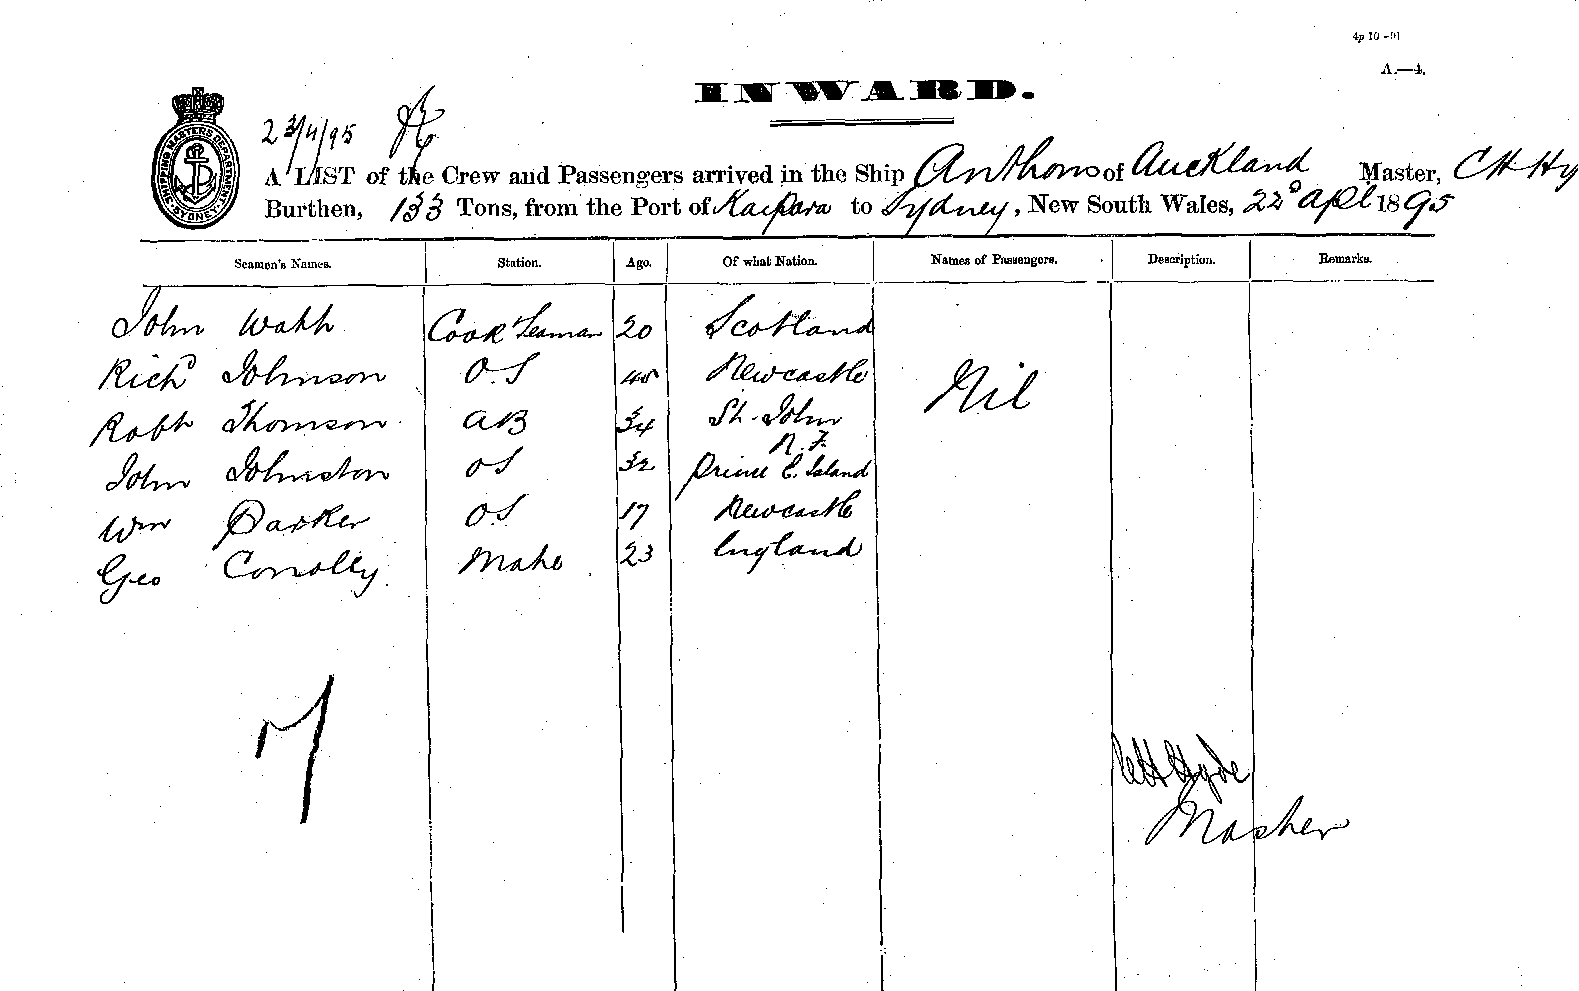 4p 10-91
A.—4.
INWARD.
23/4/95
SHIPPING MASTERS DEPARTMENT SYDNEY
A LIST of the Crew and Passengers arrived in the Ship Anthons of Auckland Master, C H Hy
Burthen, 133 Tons, from the Port of Kaipara to Sydney, New South Wales, 22d Apl 1895
Seamen's Names. Station. Age. Of what Nation. Names of Passengers. Description. Remarks.
John Watt Cook Seaman 20 Scotland
Richd Johnson O.S 45 Newcastle Nil
Robt Thomson AB 34 St. John
N.F.
John Johnston OS 32 Prince E. Island
Wm Parker OS 17 Newcastle
Geo Conolly Mate 23 England
7
CH Hyde
Master